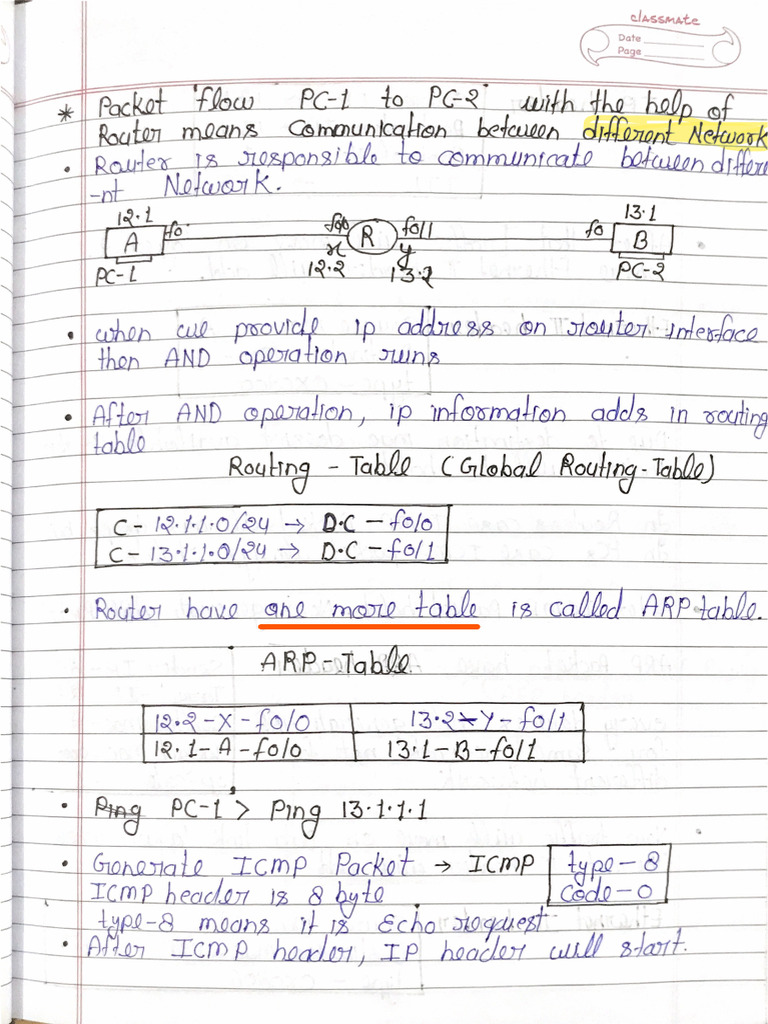 classmate
Date
Page
* Packet flow PC-1 to PC-2 with the help of
Router means Communication between different Network
• Router is responsible to communicate between differe
-nt Network.
12.1 13.1
A fo fo/0 R fo/1 fo B
x y
PC-1 12.2 13.2 PC-2
• when we provide ip address on router interface
then AND operation runs
• After AND operation, ip information adds in routing
table
Routing - Table (Global Routing-Table)
C - 12.1.1.0/24 → D.C - fo/0
C - 13.1.1.0/24 → D.C - fo/1
• Router have one more table is called ARP table.
ARP - Table
12.2-X-fo/0 13.2-Y-fo/1
12.1-A-fo/0 13.1-B-fo/1
• Ping PC-1 > Ping 13.1.1.1
• Generate ICMP Packet → ICMP type-8
ICMP header is 8 byte code-0
type-8 means it is Echo request.
• After ICMP header, IP header will start.